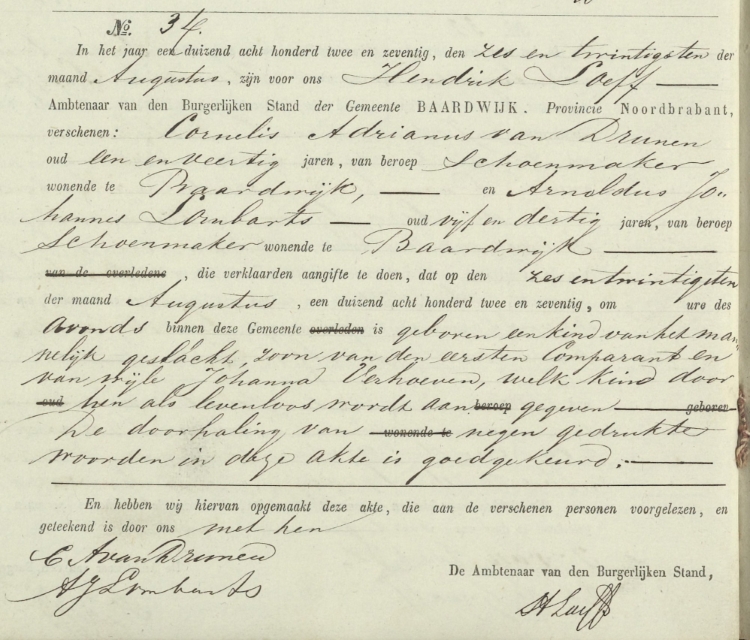 No. 34.
In het jaar een duizend acht honderd twee en zeventig, den zes en twintigsten der
maand Augustus, zijn voor ons Hendrik Loeff
Ambtenaar van den Burgerlijken Stand der Gemeente BAARDWIJK. Provincie Noordbrabant,
verschenen: Cornelis Adrianus van Drunen
oud een en veertig jaren, van beroep Schoenmaker
wonende te Baardwijk, en Arnoldus Jo-
hannes Lombarts oud vijf en dertig jaren, van beroep
Schoenmaker wonende te Baardwijk
van de overledene, die verklaarden aangifte te doen, dat op den zes en twintigsten
der maand Augustus, een duizend acht honderd twee en zeventig, om ure des
avonds binnen deze Gemeente overleden is geboren een kind van het man-
nelijk geslacht, zoon van den eersten Comparant en
van wijle Johanna Verhoeven, welk kind door
oud hen als levenloos wordt aan beroep gegeven geboren
De doorhaling van wonende te negen gedrukte
woorden in deze akte is goedgekeurd.
En hebben wij hiervan opgemaakt deze akte, die aan de verschenen personen voorgelezen, en
geteekend is door ons met hen
C A van Drunen
A J Lombarts
De Ambtenaar van den Burgerlijken Stand,
H Loeff